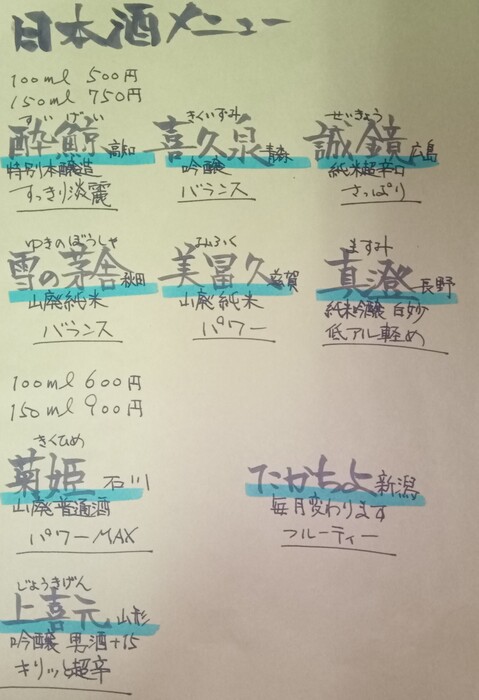 日本酒メニュー
100ml 500円
150ml 750円
すいげい
酔鯨 高知
特別本醸造
すっきり淡麗
きくいずみ
喜久泉 青森
吟醸
バランス
せいきょう
誠鏡 広島
純米超辛口
さっぱり
ゆきのぼうしゃ
雪の茅舎 秋田
山廃純米
バランス
みふく
美冨久 滋賀
山廃純米
パワー
ますみ
真澄 長野
純米吟醸 白妙
低アル軽め
100ml 600円
150ml 900円
きくひめ
菊姫 石川
山廃普通酒
パワーMAX
たかちよ 新潟
毎月変わります
フルーティー
じょうきげん
上喜元 山形
吟醸 男酒+15
キリッと超辛